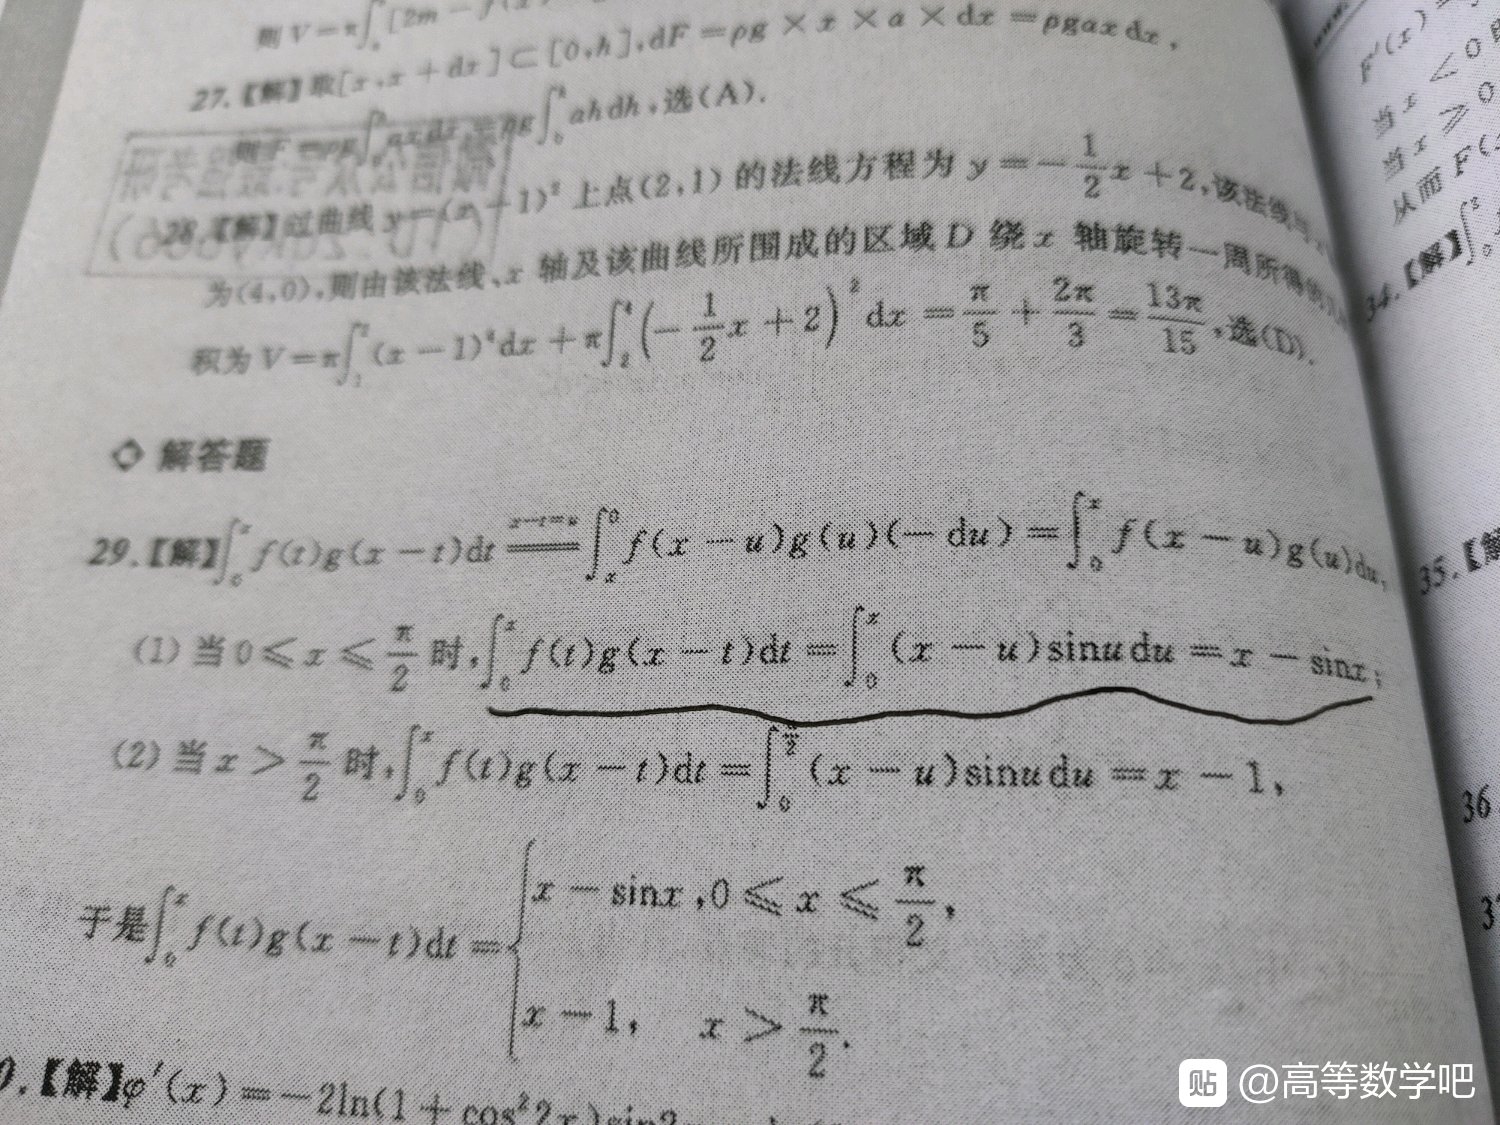 则V=π∫[2m-f(x)
27.【解】取[x,x+dx]⊂[0,h],dF=ρg×x×a×dx=ρgax dx,
则F=ρg∫₀ʰ ax dx=ρg∫₀ʰ ah dh,选(A).
28.【解】过曲线y=(x-1)²上点(2,1)的法线方程为y=-1/2 x+2,该法线与
为(4,0),则由该法线、x轴及该曲线所围成的区域D绕x轴旋转一周所得的
积为V=π∫₁²(x-1)⁴dx+π∫₂⁴(-1/2 x+2)²dx=π/5+2π/3=13π/15,选(D).
◇ 解答题
29.【解】∫₀ˣ f(t)g(x-t)dt x-t=u ∫ₓ⁰ f(x-u)g(u)(-du)=∫₀ˣ f(x-u)g(u)du,
(1)当0≤x≤π/2时,∫₀ˣ f(t)g(x-t)dt=∫₀ˣ(x-u)sinu du=x-sinx;
(2)当x>π/2时,∫₀ˣ f(t)g(x-t)dt=∫₀^(π/2)(x-u)sinu du=x-1,
于是∫₀ˣ f(t)g(x-t)dt={x-sinx,0≤x≤π/2,
x-1, x>π/2.
0.【解】φ′(x)=-2ln(1+cos²2x)sin2
F′(x)
当x<0
当x≥0
从而F(
34.【解】
35.【解
36.
贴 @高等数学吧